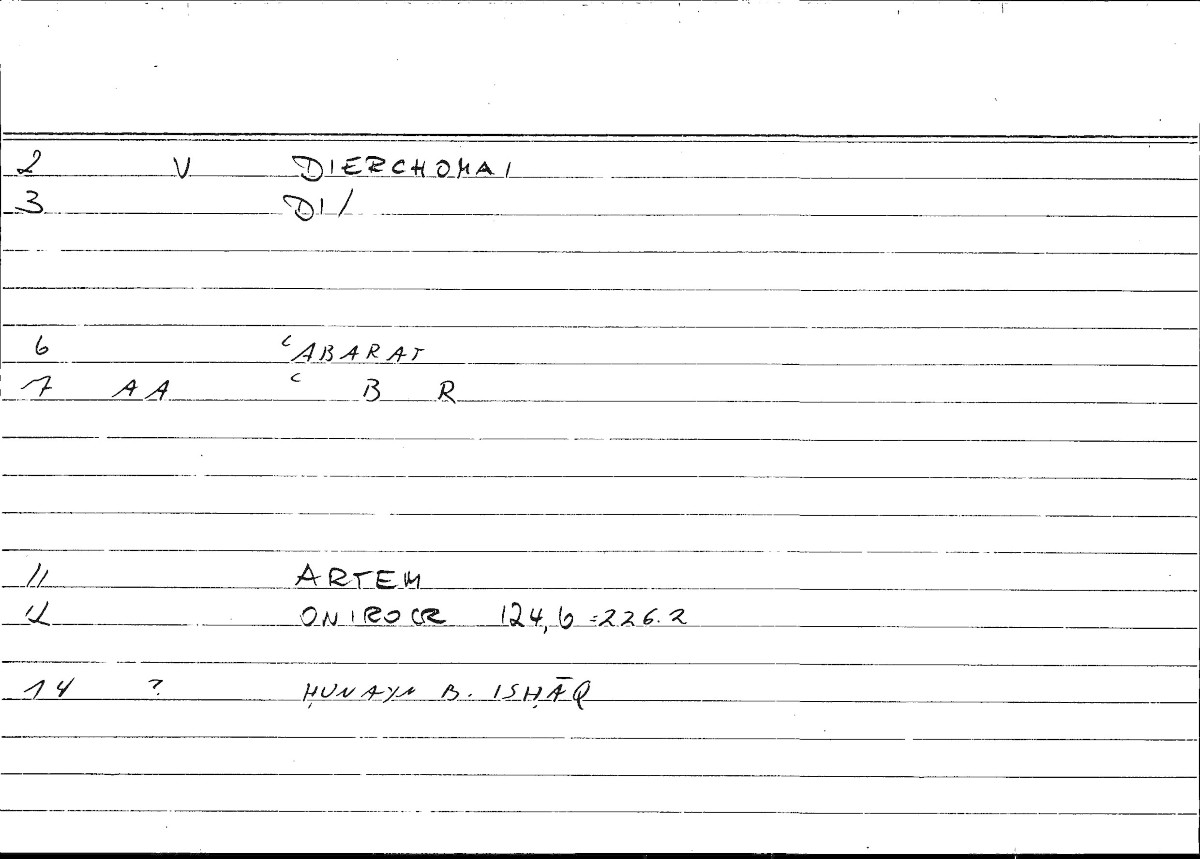 2 V DIERCHOMAI
3 DI/
6 ʿABARAT
7 AA ʿ B R
11 ARTEM
12 ONIROCR 124,6=226.2
14 ? ḤUNAYN B. ISḤĀQ